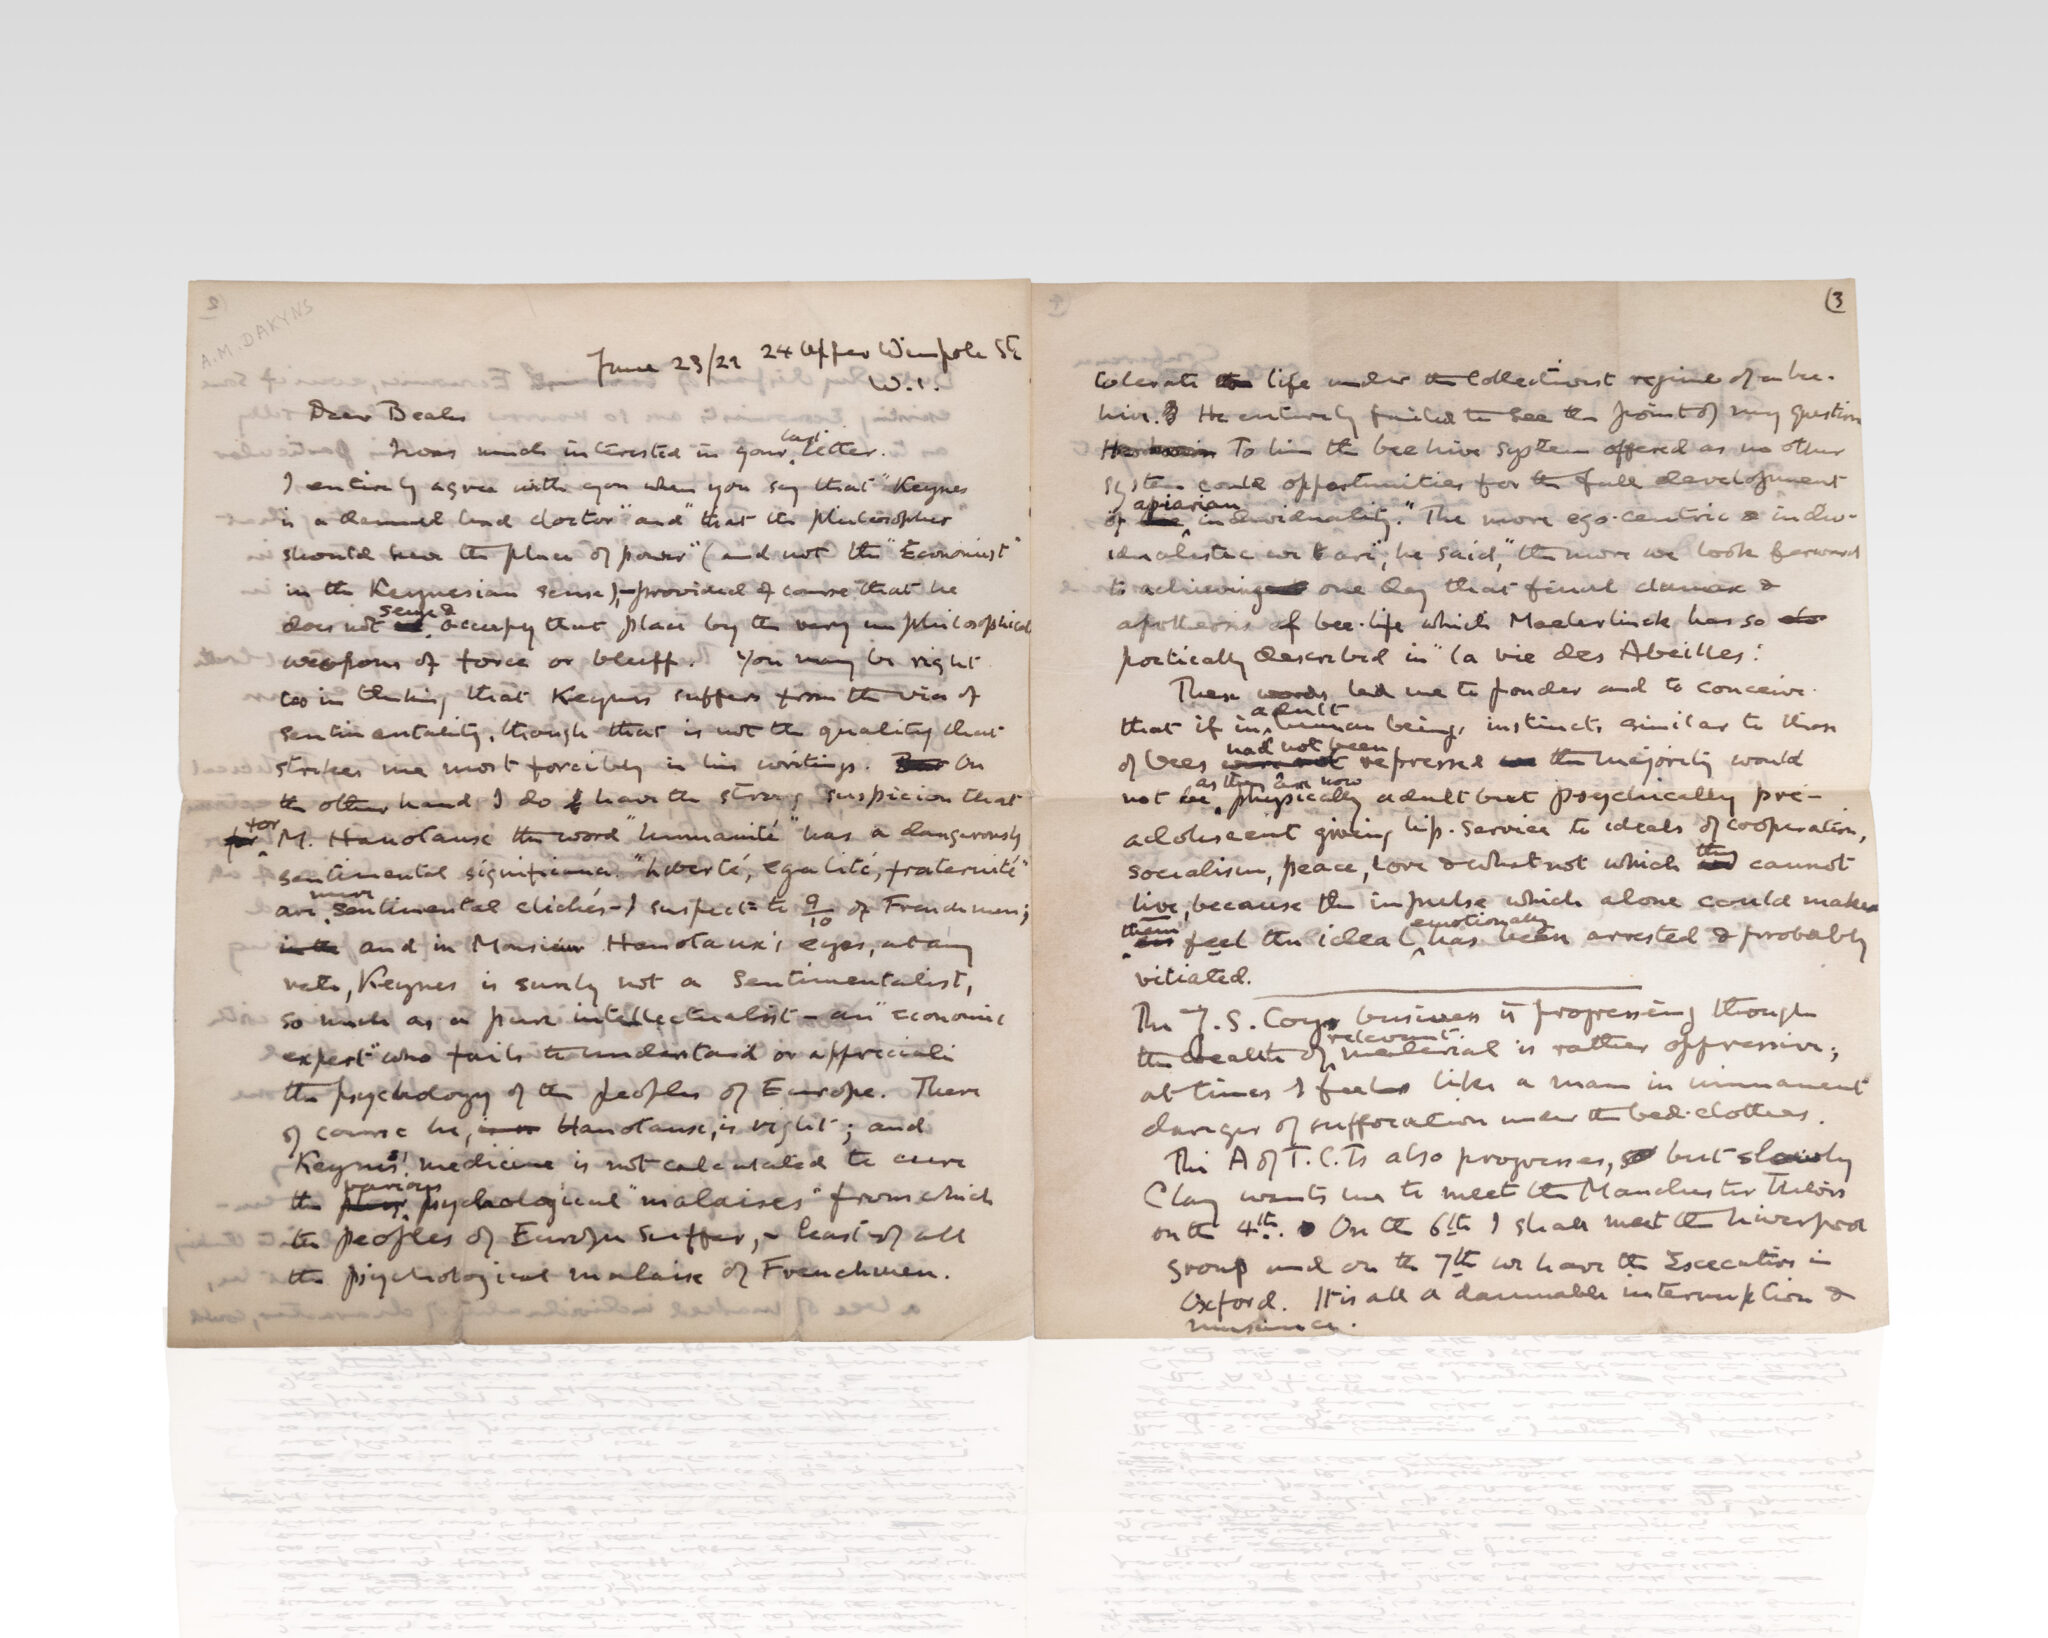 A.M. DAKYNS
June 23/22 24 Upper Wimpole St
W.1.
Dear Beales
I was much interested in your last letter.
I entirely agree with you when you say that "Keynes
is a damned bad doctor" and "that the philosopher"
should have the place of power" (and not the "Economist"
in the Keynesian sense), – provided of course that he
does not seize & occupy that place by the very unphilosophical
weapons of force or bluff. You may be right
too in thinking that Keynes suffers from the vice of
sentimentality, though that is not the quality that
strikes me most forcibly in his writings. But On
the other hand I do have the strong suspicion that
for M. Hanotaux the word "humanité" has a dangerously
sentimental significance. "Liberté, egalité, fraternité"
are mere sentimental clichés – I suspect – to 9/10 of Frenchmen;
in the and in Monsieur Hanotaux's eyes, at any
rate, Keynes is surely not a sentimentalist,
so much as a pure intellectualist – an "economic
expert" who fails to understand or appreciate
the psychology of the peoples of Europe. There
of course he, Hanotaux, is right; and
Keynes' medicine is not calculated to cure
the various psychological "malaises" from which
the peoples of Europe suffer, – least of all
the psychological malaise of Frenchmen.
(3
tolerate the life under the Collectivist regime of a bee-
hive. He entirely failed to see the point of my question
To him the beehive system offered as no other
system could opportunities for the full development
of apiarian individuality. "The more ego-centric & indiv-
idualistic we are", he said, "the more we look forward
to achieving one day that final climax &
apotheosis of bee-life which Maeterlinck has so
poetically described in "La vie des Abeilles".
These words led me to ponder and to conceive
that if in adult human beings instincts similar to those
of bees were not had not been repressed the majority would
not be, as they are now physically adult but psychically pre-
adolescent giving lip-service to ideals of cooperation,
socialism, peace, love & what not which they cannot
live, because the impulse which alone could make
them feel the ideal emotionally has been arrested & probably
vitiated.
The Y. S. Coys business is progressing though
the wealth of relevant material is rather oppressive;
at times I feel like a man in imminent
danger of suffocation under the bed-clothes.
The A of T.C.Ts also progresses, so but slowly
Clay wants me to meet the Manchester Tutors
on the 4th. On the 6th I shall meet the Liverpool
group and on the 7th we have the Executive in
Oxford. It is all a damnable interruption &
nuisance.